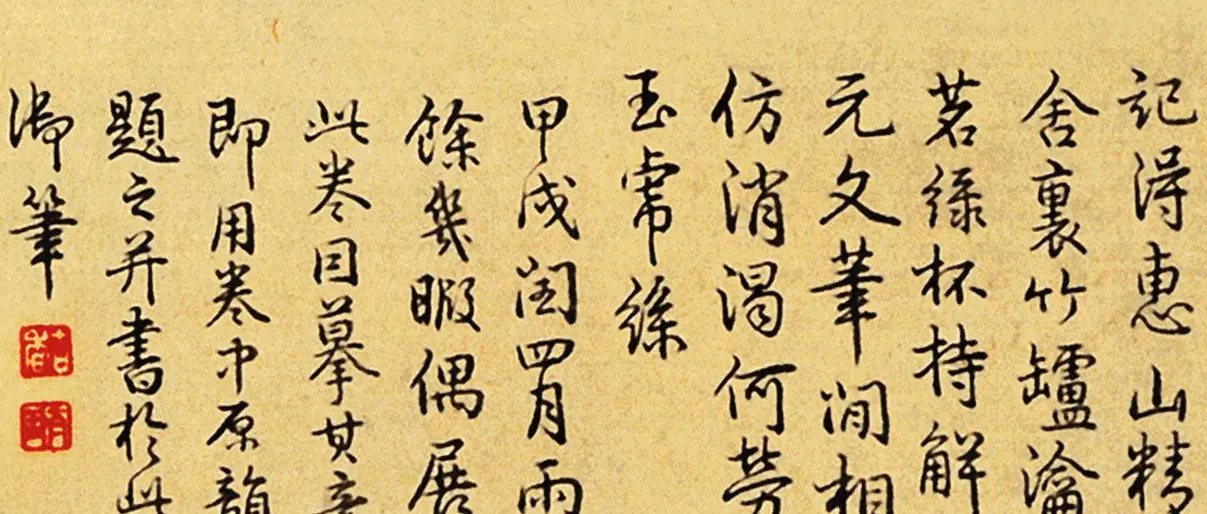 記得惠山精
舍裏竹罏瀹
茗綠杯持解
元文筆閒相
仿消渴何勞
玉常絲
甲戌閏四月雨
餘幾暇偶展
此卷因摹其意
即用卷中原韻
題之并書於此
御筆